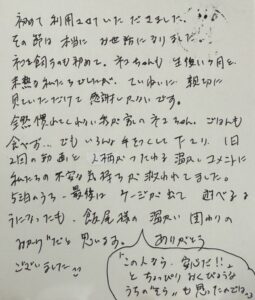 初めて利用させていただきました。
その節は本当にお世話になりました。
ネコを飼うのも初めて。ネコちゃんも生後1ヶ月と、
未熟な私たちでしたが、ていねいに親切に
見していただけて感謝しかないです。
全然慣れてくれない我が家のネコちゃん、ごはんも
食べず… でもいろんな手をつくして下さり、1日
2回の動画と人柄がつたわる温かいコメントに
私たちの不安な気持ちが救われてました。
5泊のうち、最後はケージから出て遊べるよ
うになったも、飯尾様の温かい関わりの
おかげだと思います。ありがとう
ございました
「この人なら、安心だ!!」
とちょっぴりおくびょうな
うちの も思ったのでは